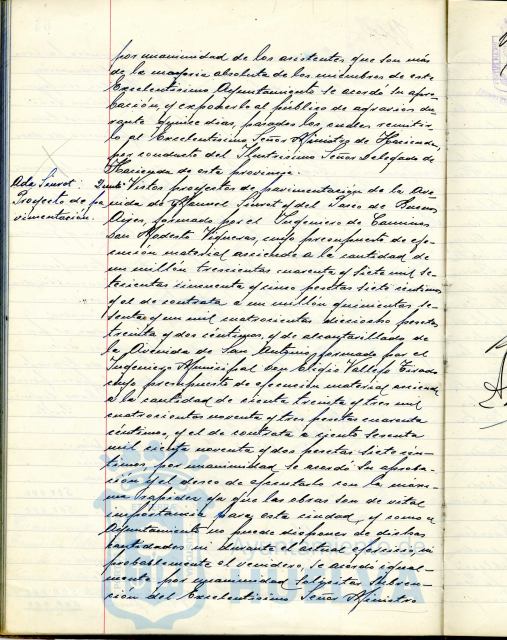 por unanimidad de los asistentes que son más
de la mayoría absoluta de los miembros de este
Excelentísimo Ayuntamiento se acordó su apro-
bación, y exponerlo al público de agravios du-
rante quince días, pasados los cuales remitir-
lo al Excelentísimo Señor Ministro de Hacienda,
por conducto del Ilustrísimo Señor Delegado de
Hacienda de esta provincia.
Ada Siurot:
Proyecto de pa
vimentación.
Vistos proyectos de pavimentación de la Ave-
nida de Manuel Siurot y del Paseo de Buenos
Aires, formado por el Ingeniero de Caminos
Don Modesto Vigueras, cuyo presupuesto de eje-
cución material asciende a la cantidad de
un millón trescientas cuarenta y siete mil se-
tecientas cincuenta y cinco pesetas siete céntimos
y el de contrata a un millón quinientas se-
senta y un mil cuatrocientas dieciocho pesetas
treinta y dos céntimos, y de alcantarillado de
la Avenida de San Antonio, formado por el
Ingeniero Municipal Don Eligio Vallejo Tirado
cuyo presupuesto de ejecución material asciende
a la cantidad de ciento treinta y tres mil
cuatrocientas noventa y tres pesetas cuarenta
céntimos, y el de contrata a ciento sesenta
mil ciento noventa y dos pesetas siete cén-
timos, por unanimidad se acordó su aproba-
ción y el deseo de ejecutarlo con la máxi-
ma rapidez ya que las obras son de vital
importancia para esta ciudad, y como el
Ayuntamiento no puede disponer de dichas
cantidades ni durante el actual ejercicio, ni
probablemente el venidero, se acordó igual-
mente por unanimidad solicitar subven-
ción del Excelentísimo Señor Ministro